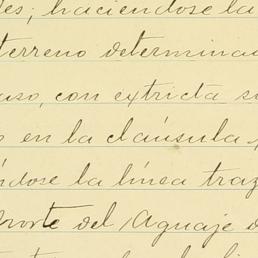 es; haciéndose la
terreno determina
aso, con extricta s
en la claúsula
ndose la línea traz
Norte del Aguaje d